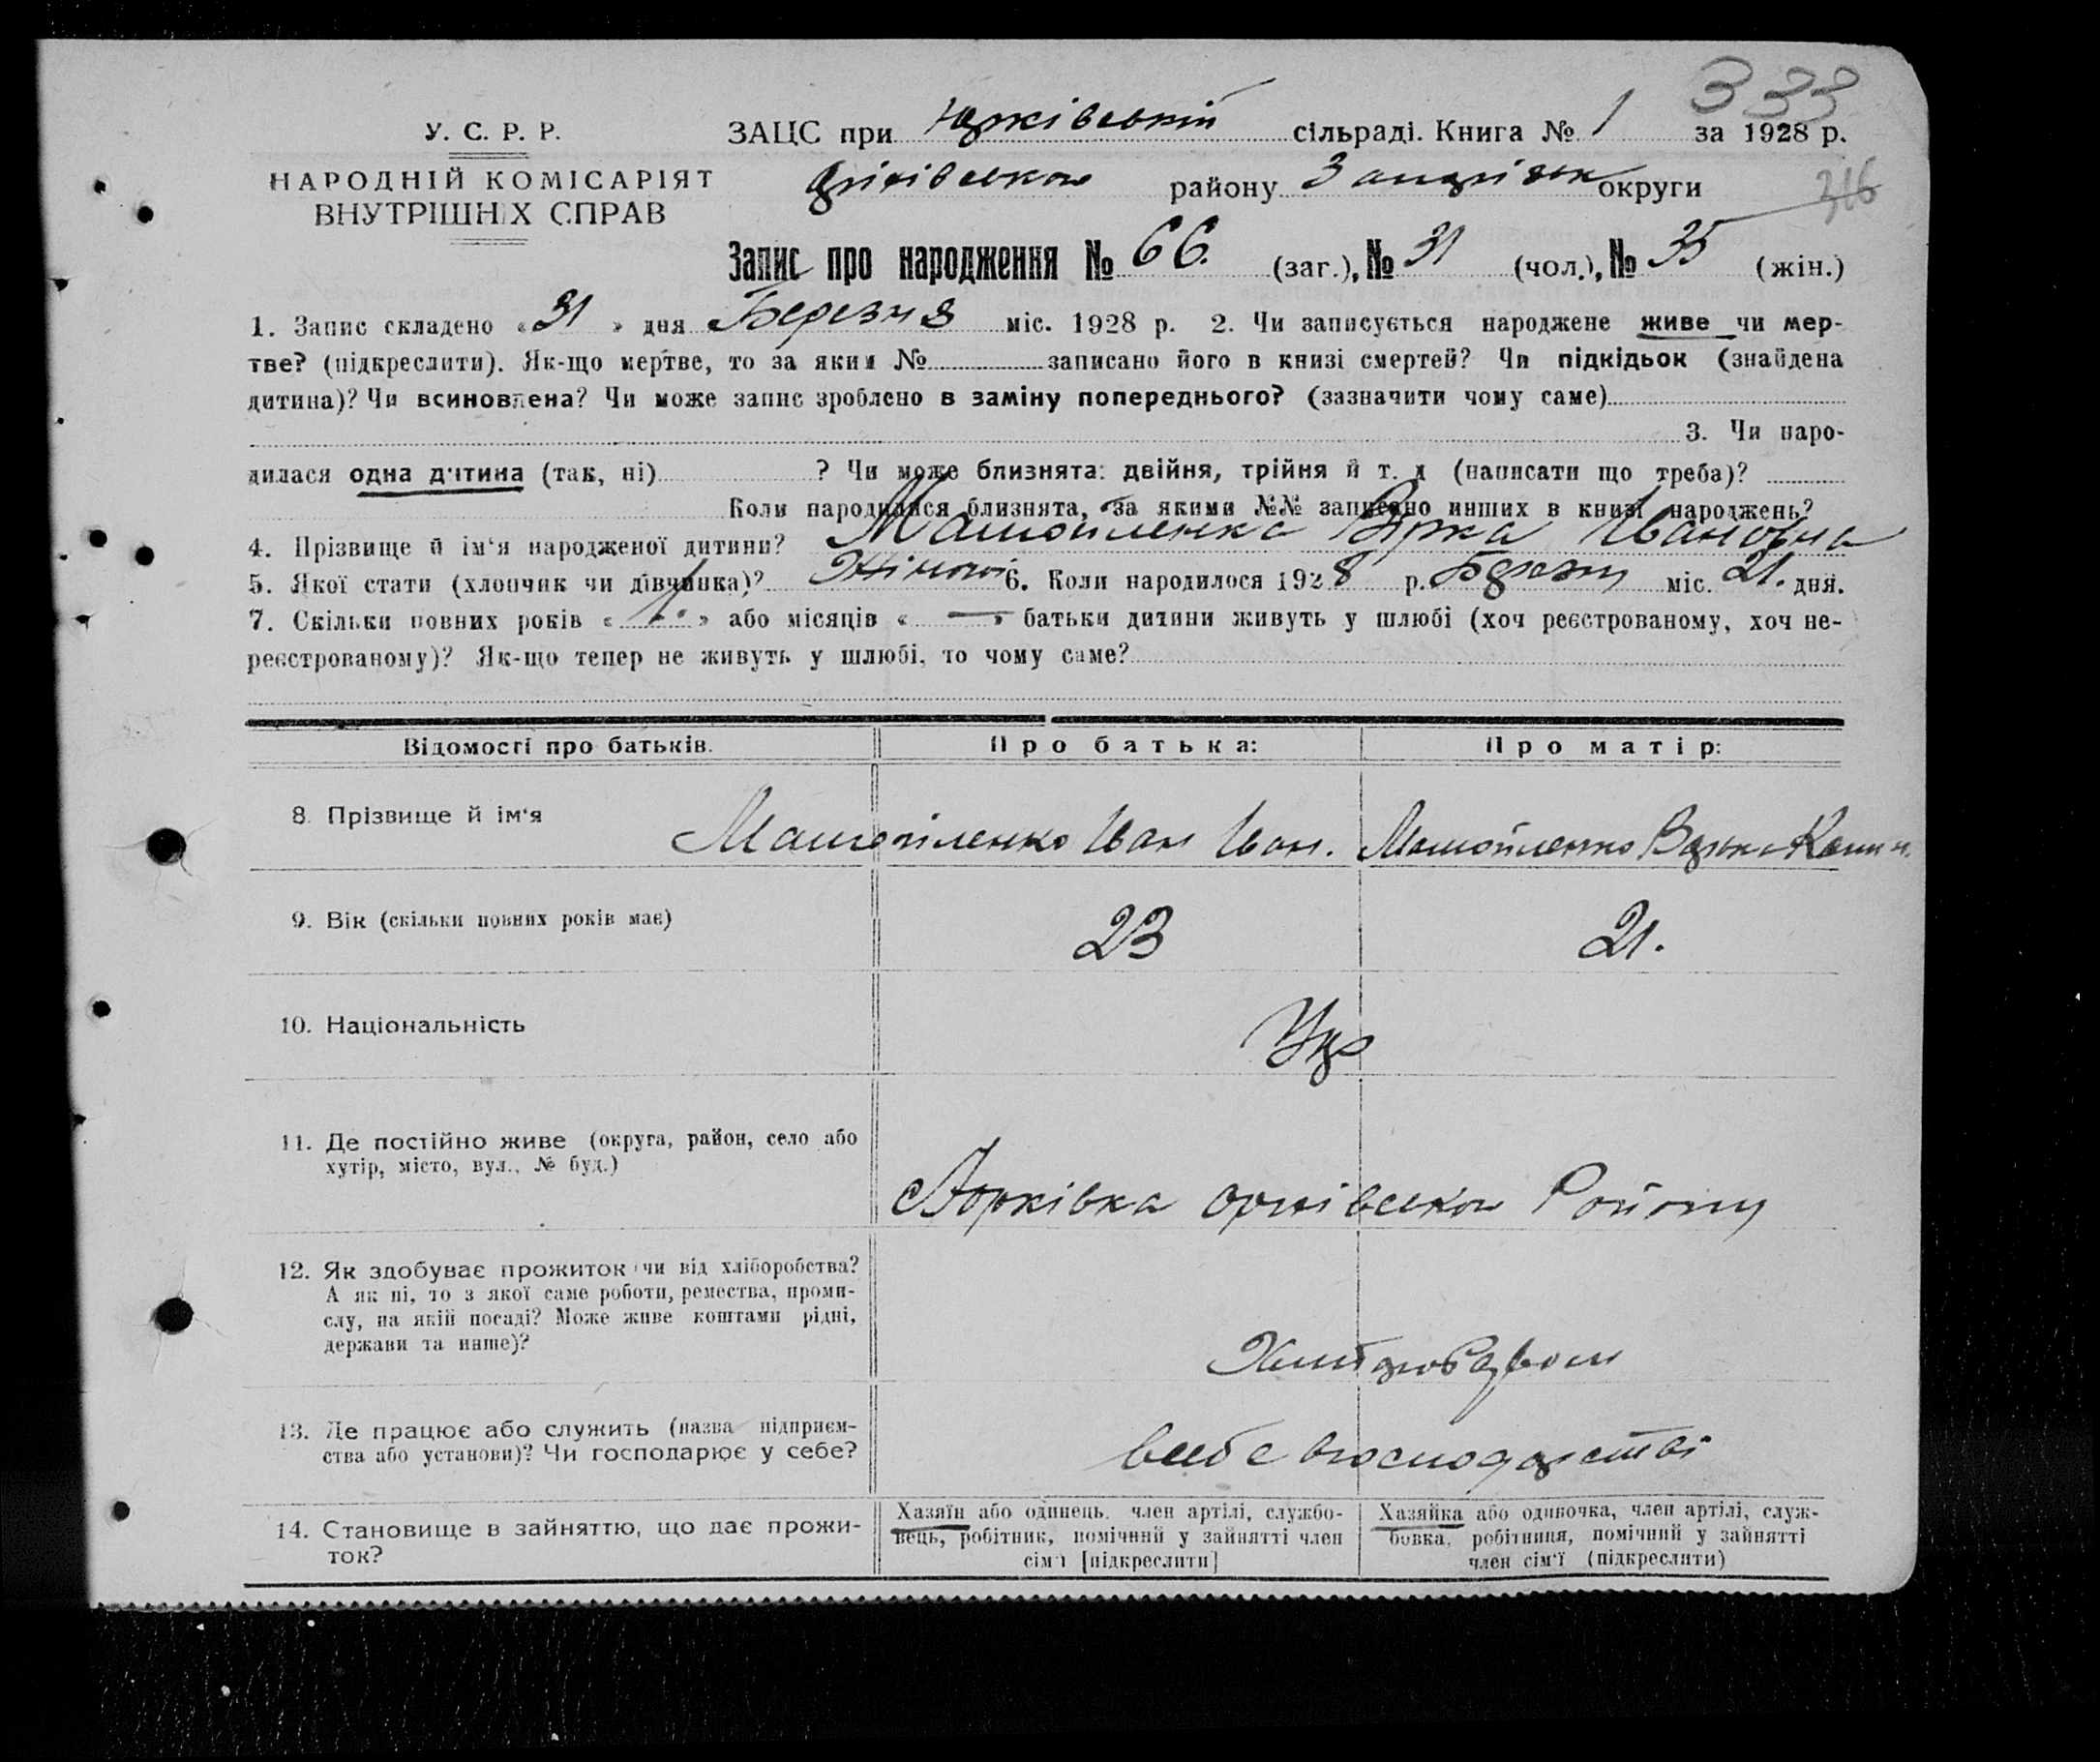 333
У. С. Р. Р.
ЗАЦС при Юрківській сільраді. Книга № 1 за 1928 р.
НАРОДНІЙ КОМІСАРІЯТ
ВНУТРІШНІХ СПРАВ
району округи
316
Запис про народження № 66. (заг.), № 31 (чол.), № 35 (жін.)
1. Запис складено «31» дня Березня міс. 1928 р. 2. Чи записується народжене живе чи мер-
тве? (підкреслити). Як-що мертве, то за яким № записано його в книзі смертей? Чи підкідьок (знайдена
дитина)? Чи всиновлена? Чи може запис зроблено в заміну попереднього? (зазначити чому саме)
3. Чи наро-
дилася одна дитина (так, ні) ? Чи може близнята: двійня, трійня й т. д (написати що треба)?
Коли народилися близнята, за якими №№ записано инших в книзі народжень?
4. Прізвище й ім‘я народженої дитини? Івановна
5. Якої стати (хлопчик чи дівчинка)? Жіночої 6. Коли народилося 1928 р. Березня міс. 21. дня.
7. Скільки повних років «1.» або місяців «—» батьки дитини живуть у шлюбі (хоч реєстрованому, хоч не-
реєстрованому)? Як-що тепер не живуть у шлюбі, то чому саме?
Відомості про батьків. Про батька: Про матір:
8. Прізвище й ім‘я Іван Іван.
9. Вік (скільки повних років має) 23 21.
10. Національність Укр
11. Де постійно живе (округа, район, село або
хутір, місто, вул., № буд.)
с Юрківка Району
12. Як здобуває прожиток (чи від хліборобства?
А як ні, то з якої саме роботи, ремества, проми-
слу, на якій посаді? Може живе коштами рідні,
держави та инше)?
13. Де працює або служить (назва підприєм-
ства або установи)? Чи господарює у себе?
всебе вгосподарстві
14. Становище в зайняттю, що дає прожи-
ток?
Хазяїн або одинець, член артілі, службо-
вець, робітник, помічний у зайнятті член
сім‘ї [підкреслити]
Хазяйка або одиночка, член артілі, служ-
бовка, робітниця, помічний у зайнятті
член сім‘ї (підкреслити)